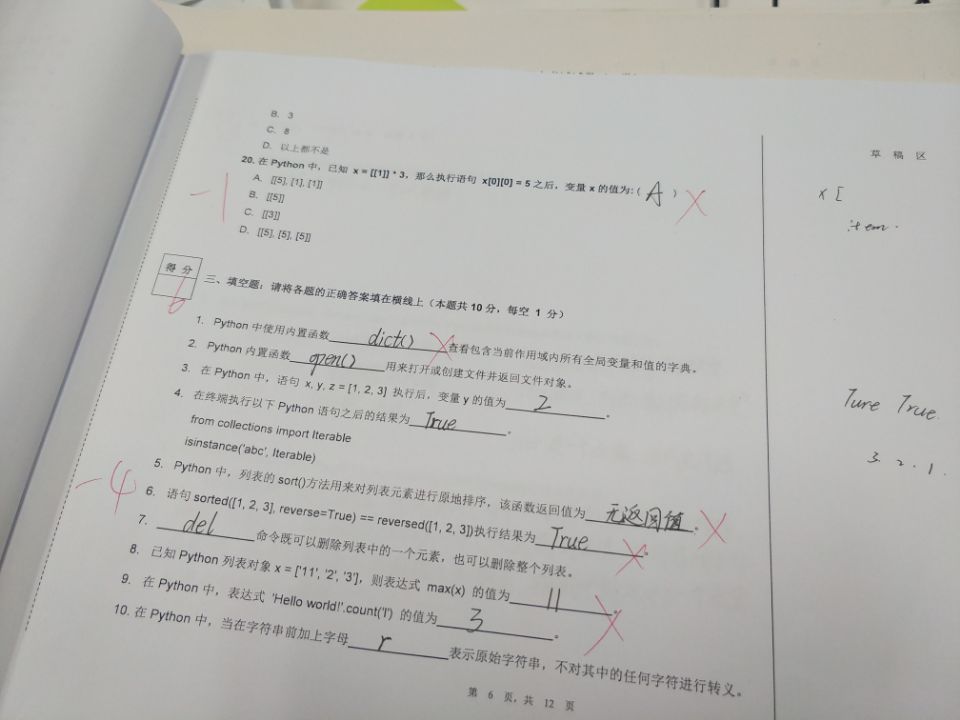 B. 3
C. 8
D. 以上都不是
20. 在 Python 中，已知 x = [[1]] * 3，那么执行语句 x[0][0] = 5 之后，变量 x 的值为:( A )
A. [[5], [1], [1]]
B. [[5]]
C. [[3]]
D. [[5], [5], [5]]
-1
得 分
6
三、填空题：请将各题的正确答案填在横线上（本题共 10 分，每空 1 分）
1. Python 中使用内置函数 dict() 查看包含当前作用域内所有全局变量和值的字典。
2. Python 内置函数 open() 用来打开或创建文件并返回文件对象。
3. 在 Python 中，语句 x, y, z = [1, 2, 3] 执行后，变量 y 的值为 2 。
4. 在终端执行以下 Python 语句之后的结果为 True 。
from collections import Iterable
isinstance('abc', Iterable)
5. Python 中，列表的 sort()方法用来对列表元素进行原地排序，该函数返回值为 无返回值 。
6. 语句 sorted([1, 2, 3], reverse=True) == reversed([1, 2, 3])执行结果为 True 。
7. del 命令既可以删除列表中的一个元素，也可以删除整个列表。
8. 已知 Python 列表对象 x = ['11', '2', '3']，则表达式 max(x) 的值为 11 。
9. 在 Python 中，表达式 'Hello world!'.count('l') 的值为 3 。
10. 在 Python 中，当在字符串前加上字母 r 表示原始字符串，不对其中的任何字符进行转义。
-4
第 6 页，共 12 页
草 稿 区
x [
item.
Ture True.
3. 2. 1.